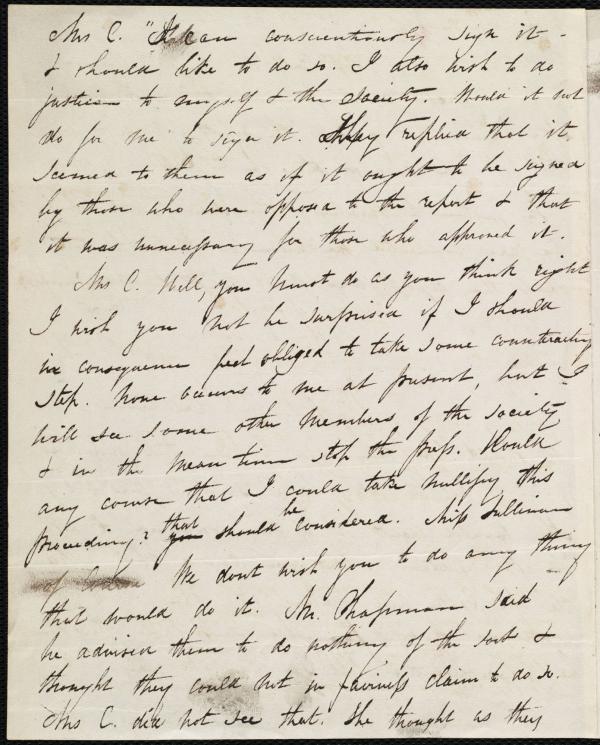 Mrs C. "I can conscientiously sign it -
& should like to do so. I also wish to do
justice to myself & the Society. Would it not
do for me to sign it. They replied that it
seemed to them as if it ought to be signed
by those who were opposed to the report & that
it was unnecessary for those who approved it.
Mrs C. Well, you must do as you think right
I wish you not be surprised if I should
in consequence feel obliged to take some counteracting
step. None occurs to me at present, but I
will see some other members of the Society
& in the mean time stop the press. Would
any course that I could take nullify this
proceeding? that should be considered. Miss Sullivan
We dont wish you to do any thing
that would do it. Mr. Chapman said
he advised them to do nothing of the sort &
thought they could not in fairness claim to do so.
Mrs C. did not see that. She thought as they